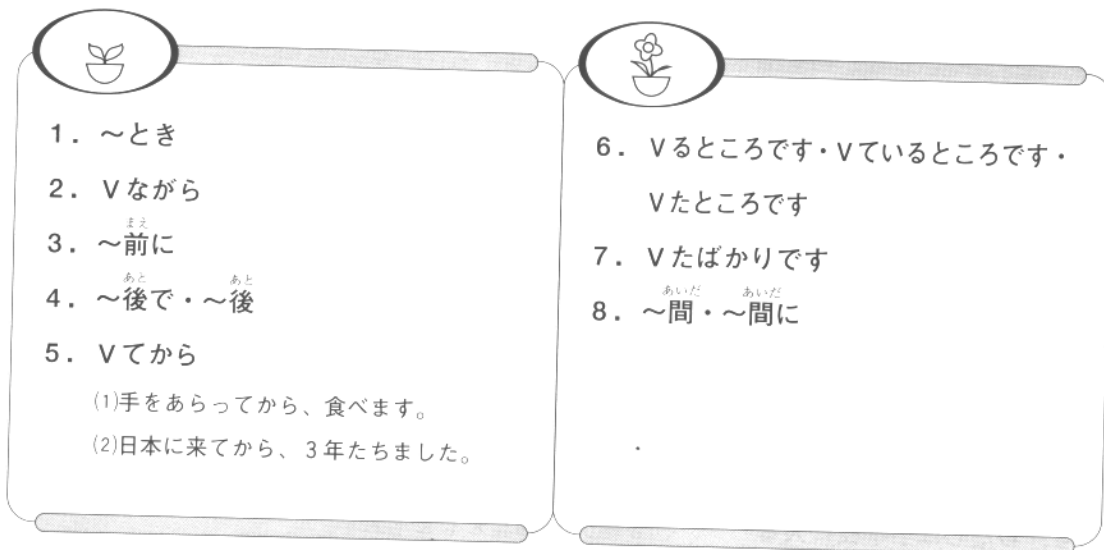 1. ～とき
2. Vながら
3. ～前に
まえ
4. ～後で・～後
あと あと
5. Vてから
(1)手をあらってから、食べます。
(2)日本に来てから、3年たちました。
6. Vるところです・Vているところです・
Vたところです
7. Vたばかりです
8. ～間・～間に
あいだ あいだ